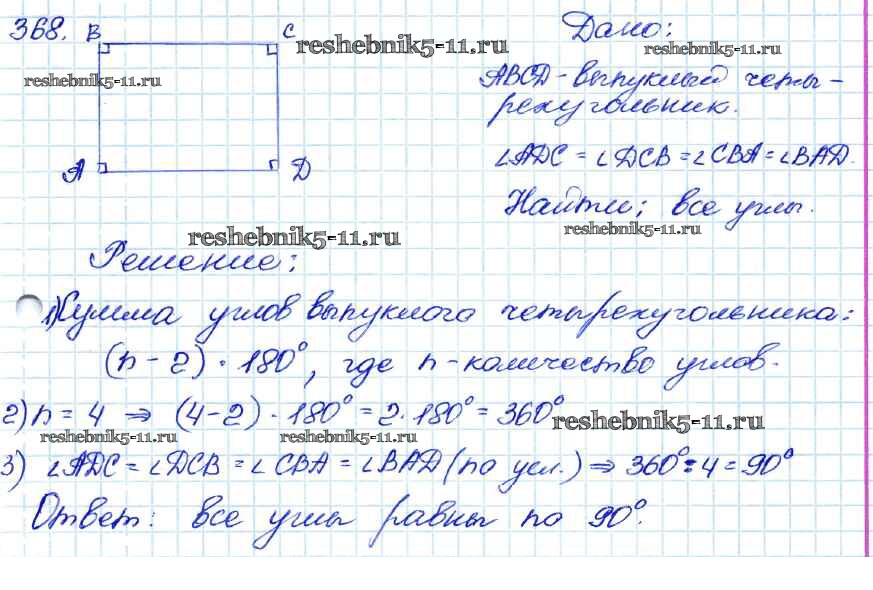 368. B C
reshebnik5-11.ru
Дано:
reshebnik5-11.ru
reshebnik5-11.ru
ABCD - выпуклый четы-
рехугольник.
∠ADC = ∠DCB = ∠CBA = ∠BAD.
A D
Найти; все углы.
reshebnik5-11.ru
reshebnik5-11.ru
Решение:
1) Сумма углов выпуклого четырехугольника:
(n - 2) · 180°, где n - количество углов.
2) n = 4 ⇒ (4-2) · 180° = 2 · 180° = 360°
reshebnik5-11.ru
reshebnik5-11.ru
reshebnik5-11.ru
3) ∠ADC = ∠DCB = ∠CBA = ∠BAD (по усл.) ⇒ 360° : 4 = 90°
Ответ: все углы равны по 90°.